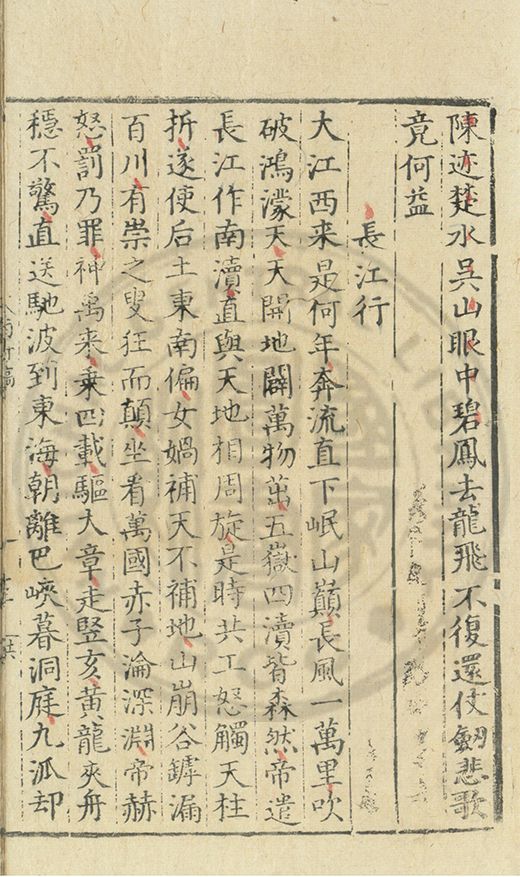 陳迹楚水吳山眼中碧鳳去龍飛不復還仗劒悲歌
竟何益
長江行
大江西来是何年奔流直下岷山巔長風一萬里吹
破鴻濛天天開地闢萬物萬五嶽四瀆皆森然帝遣
長江作南瀆直與天地相周旋是時共工怒觸天柱
折遂使后土東南偏女媧補天不補地山崩谷罅漏
百川有崇之叟狂而顛坐看萬國赤子淪深淵帝赫
怒罰乃罪神禹来乗四載驅大章走竪亥黃龍夾舟
穩不驚直送馳波到東海朝離巴峽暮洞庭九派却